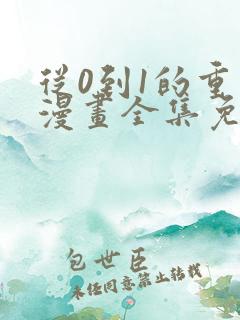 從0到1的重
漫畫全集免
包世臣
未經同意禁止轉載